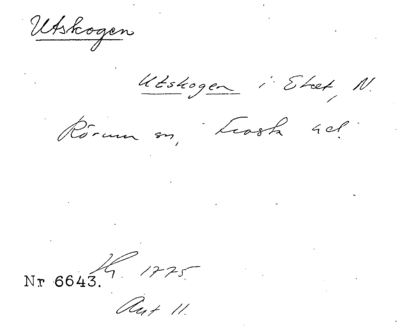 Utskogen
Utskogen i Eket, N.
Rörum sn, Frosta hd.
Nr 6643. Hg. 1775.
Akt 11.